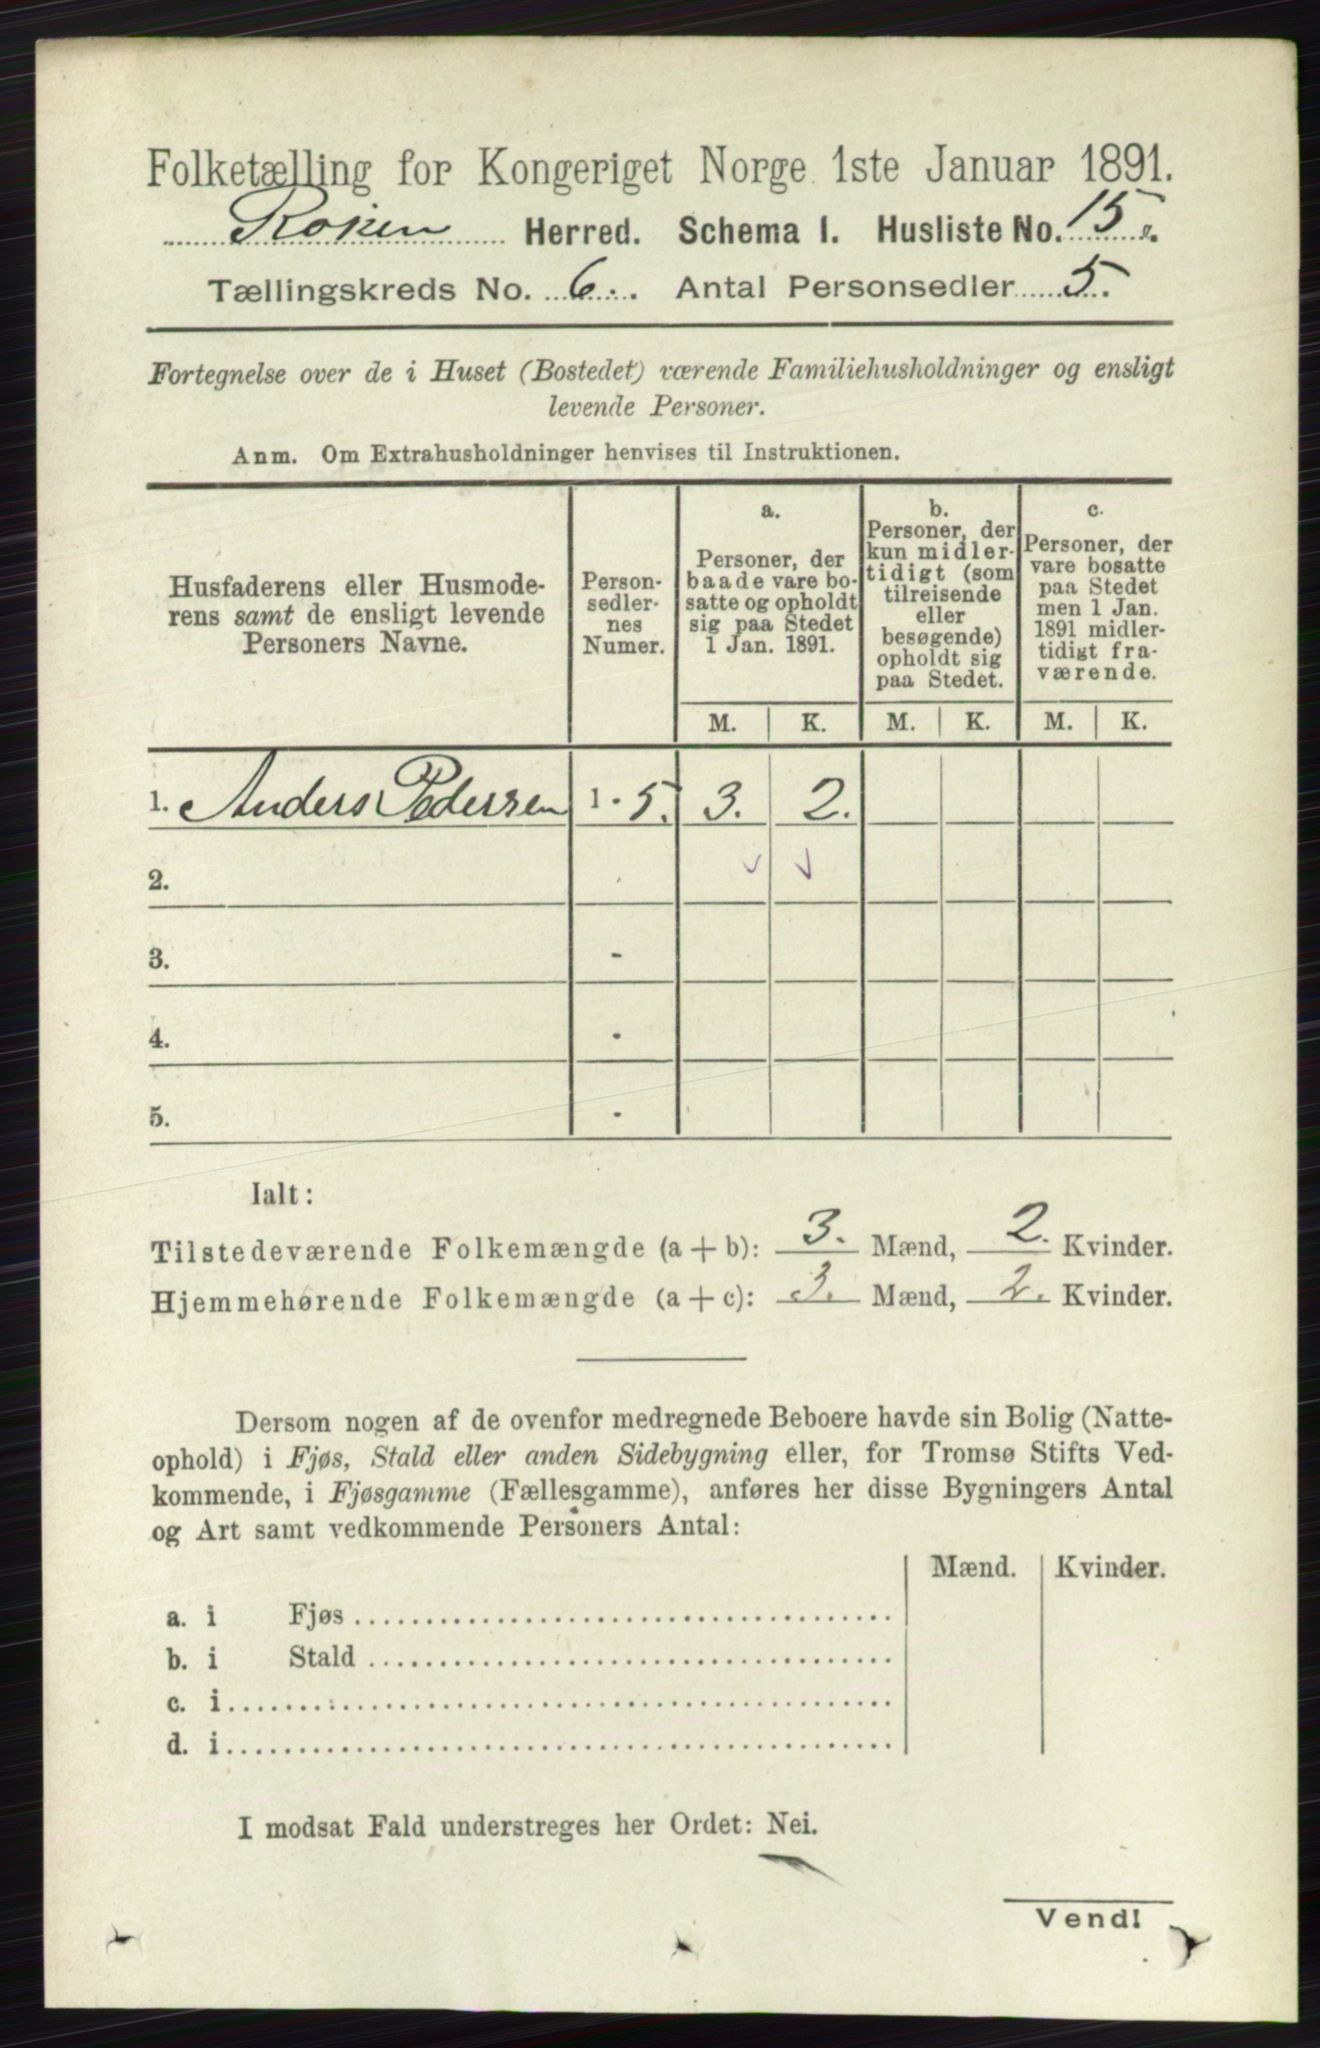 Folketælling for Kongeriget Norge 1ste Januar 1891.
Røken Herred. Schema I. Husliste No. 15.
Tællingskreds No. 6. Antal Personsedler 5.
Fortegnelse over de i Huset (Bostedet) værende Familiehusholdninger og ensligt
levende Personer.
Anm. Om Extrahusholdninger henvises til Instruktionen.
Husfaderens eller Husmode-
rens samt de ensligt levende
Personers Navne.
Person-
sedler-
nes
Numer.
a.
Personer, der
baade vare bo-
satte og opholdt
sig paa Stedet
1 Jan. 1891.
b.
Personer, der
kun midler-
tidigt (som
tilreisende
eller
besøgende)
opholdt sig
paa Stedet.
c.
Personer, der
vare bosatte
paa Stedet
men 1 Jan.
1891 midler-
tidigt fra-
værende.
M. K. M. K. M. K.
1. Anders Pedersen 1-5. 3. 2.
2.
3. -
4. -
5. -
Ialt:
Tilstedeværende Folkemængde (a + b): 3. Mænd, 2. Kvinder.
Hjemmehørende Folkemængde (a + c): 3. Mænd, 2. Kvinder.
Dersom nogen af de ovenfor medregnede Beboere havde sin Bolig (Natte-
ophold) i Fjøs, Stald eller anden Sidebygning eller, for Tromsø Stifts Ved-
kommende, i Fjøsgamme (Fællesgamme), anføres her disse Bygningers Antal
og Art samt vedkommende Personers Antal:
Mænd. Kvinder.
a. i Fjøs
b. i Stald
c. i
d. i
I modsat Fald understreges her Ordet: Nei.
Vend!